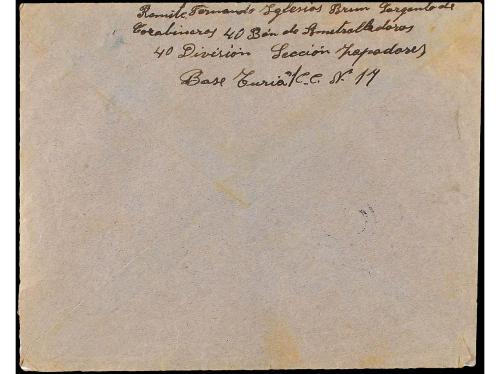 Remite Fernando Iglesias Brun Sargento de
Carabineros 40 Bón de Ametralladoras
40 División Sección Zapadores
Base Turia C.C. Nº 17